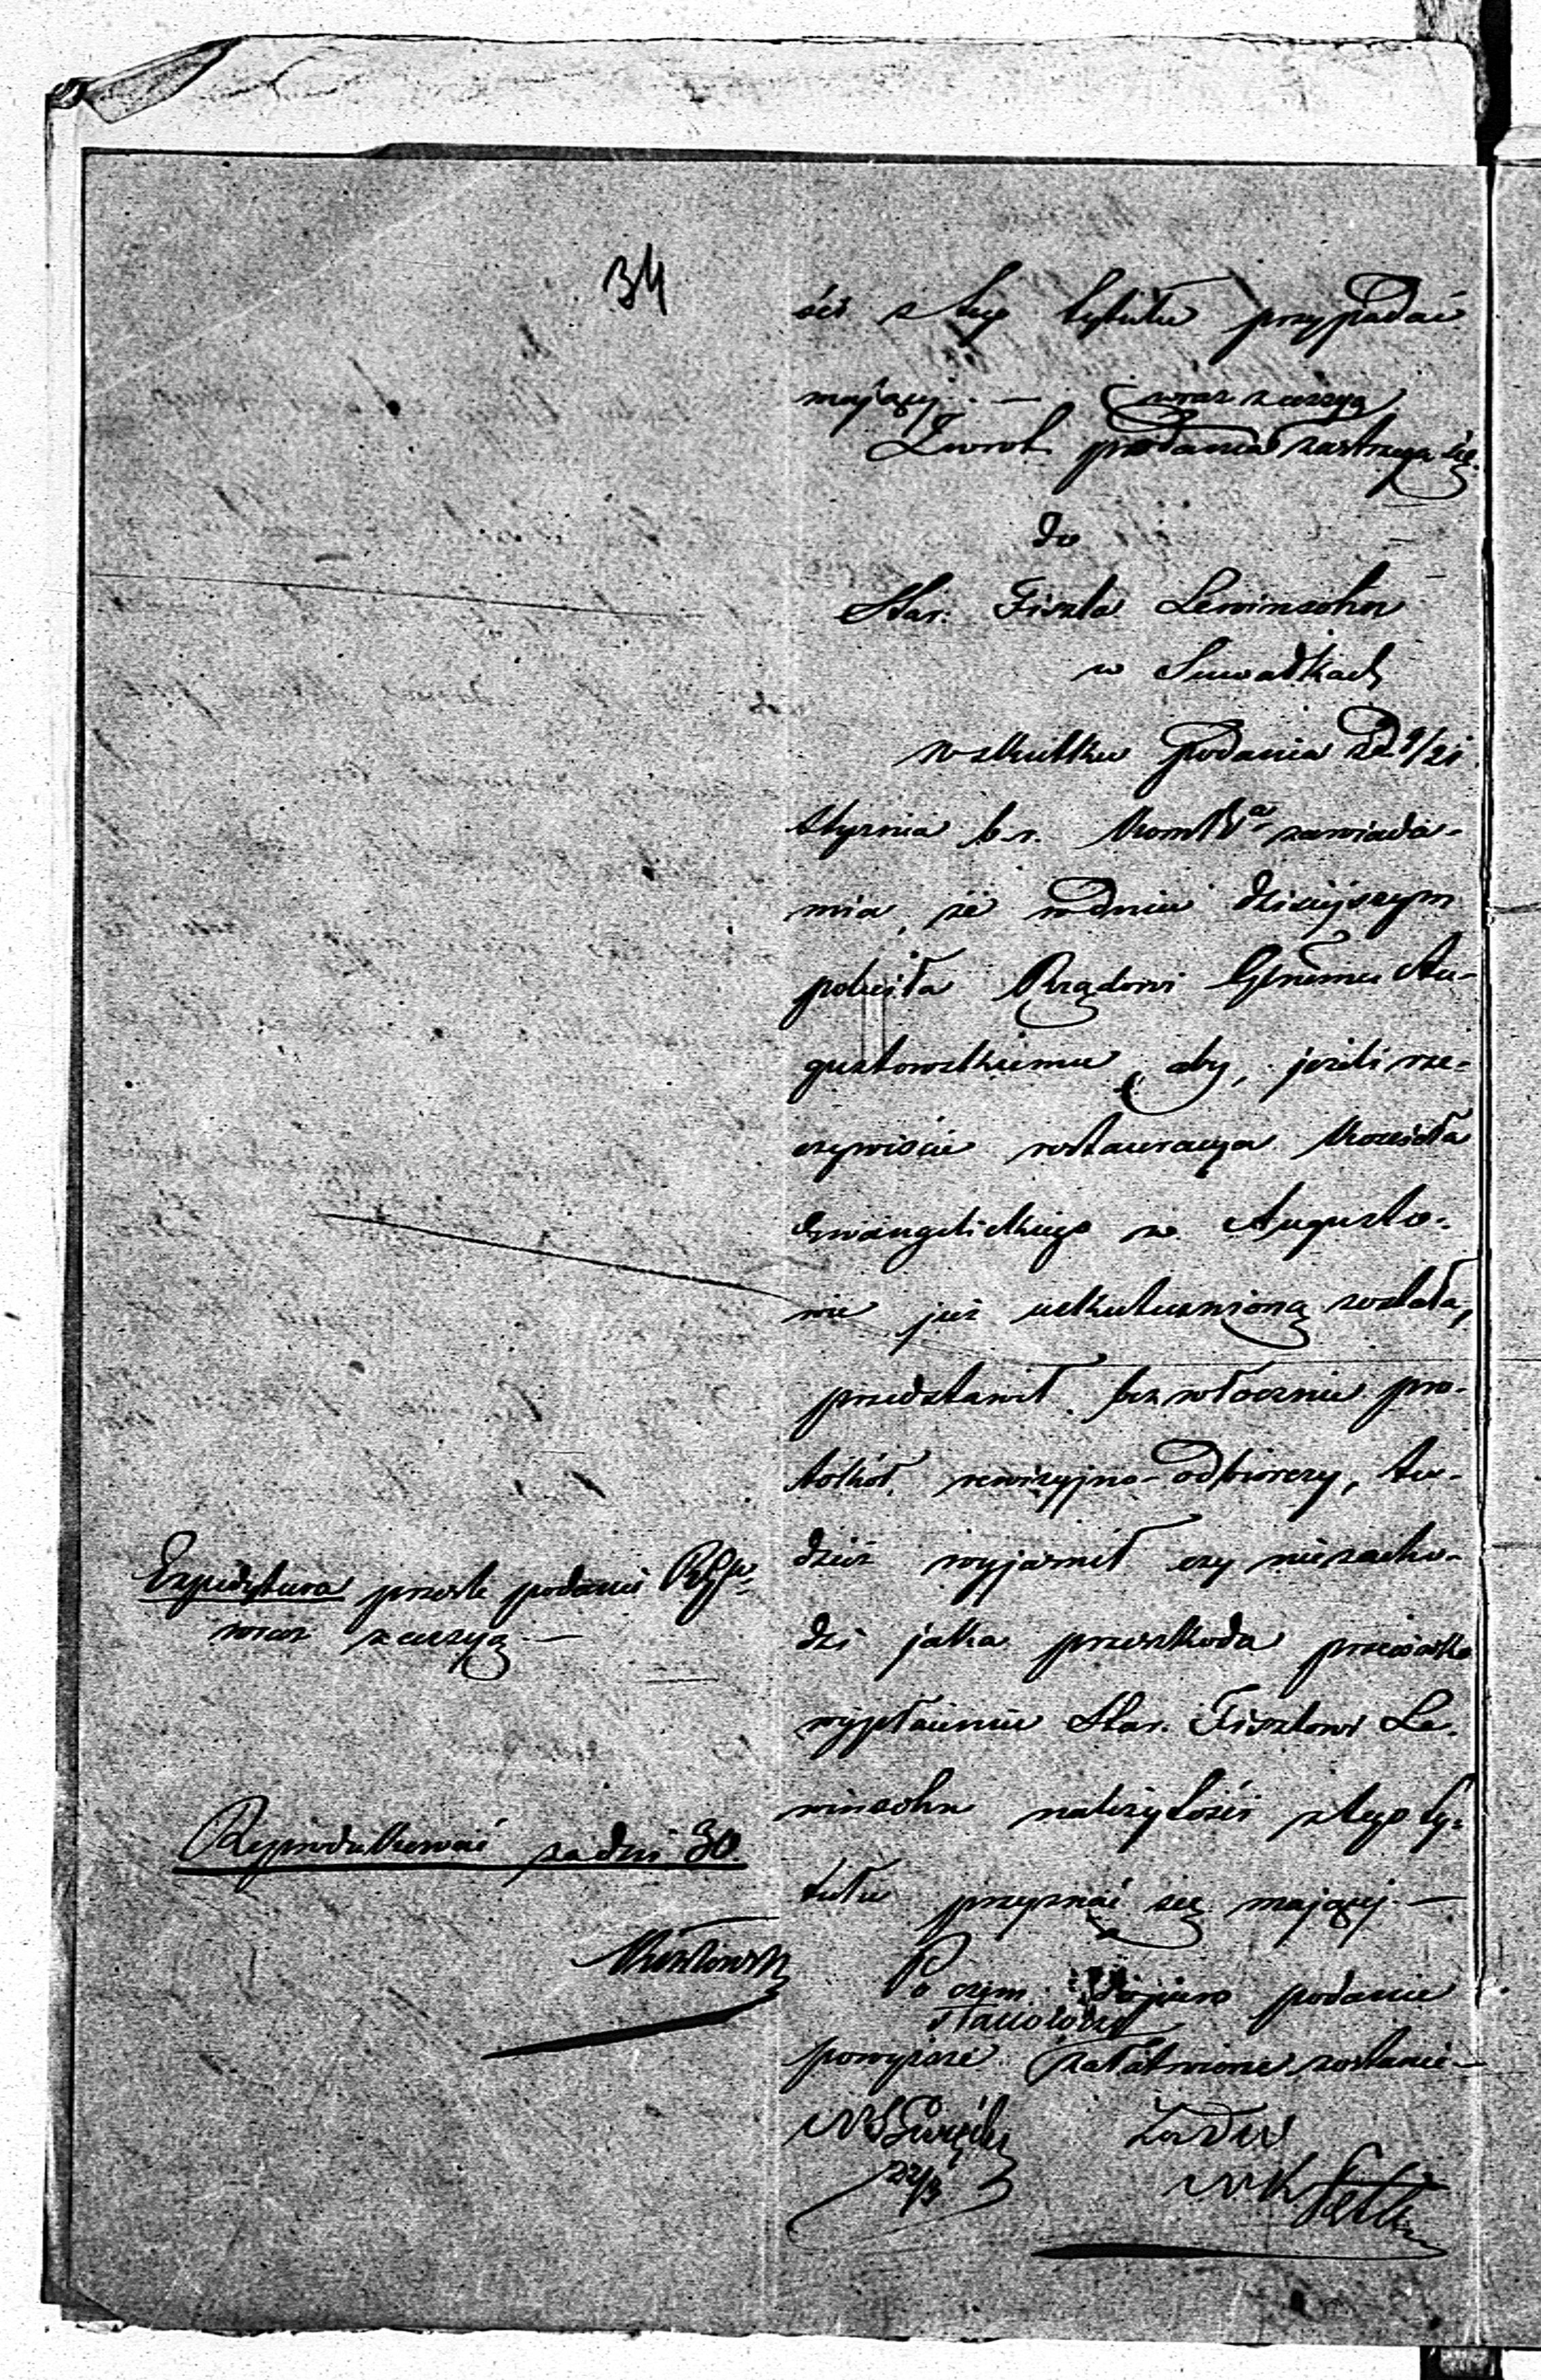 34
ści z tego tytułu przypadać
mającej. — (wraz z alleg.)
Zwrot podania zastrzega się.
do
Star. Fiszla Lewinsohn
w Suwałkach
W skutku podania z d. 9/21
Stycznia b.r. Kom. Rwa zawiada-
mia, że w dniu dzisiejszym
poleciła Rządowi Gbernmu Au-
gustowskiemu, aby, jeżeli rze-
czywiście restauracya Kościoła
Ewangelickiego w Augusto-
wie już uskutecznioną została,
przedstawił bezwłocznie pro-
tokół rewizyjno-odbiorczy, tu-
dzież wyjaśnił czy niezacho-
dzi jaka przeszkoda przeciwko
wypłaceniu Star. Fiszlowi Le-
winsohn należytości z tego ty-
tułu przyznać się mającej. —
Po czem dopiero podanie
powyższe załatwione zostanie —
Expedytura prześle podanie
wraz z
Reprodukować za dni 30
22/3